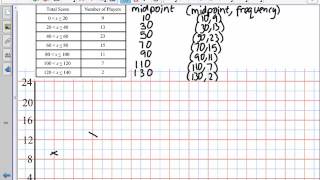 Total Score Number of Players midpoint (midpoint, frequency)
0 < x ≤ 20 9 10 (10,9)
20 < x ≤ 40 13 30 (30,13)
40 < x ≤ 60 23 50 (50,23)
60 < x ≤ 80 15 70 (70,15)
80 < x ≤ 100 11 90 (90,11)
100 < x ≤ 120 7 110 (110,7)
120 < x ≤ 140 2 130 (130,2)
24
20
16
12
8
4